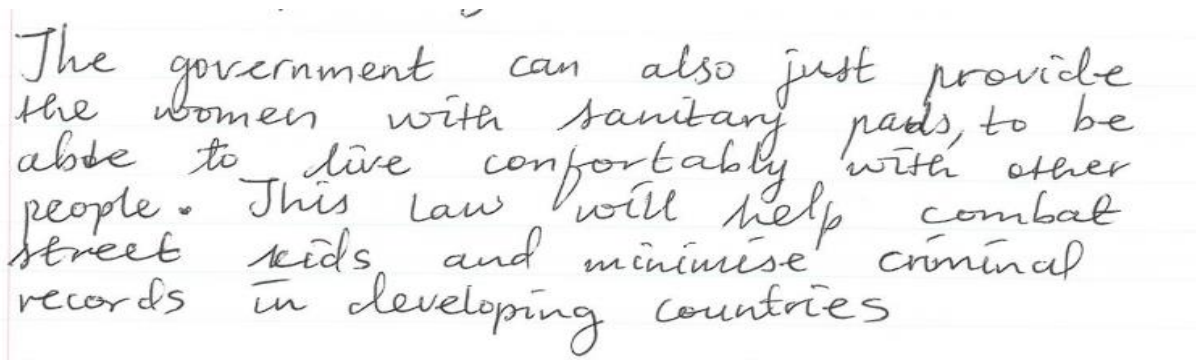 The government can also just provide
the women with sanitary pads, to be
able to live confortably with other
people. This law will help combat
street kids and minimise criminal
records in developing countries